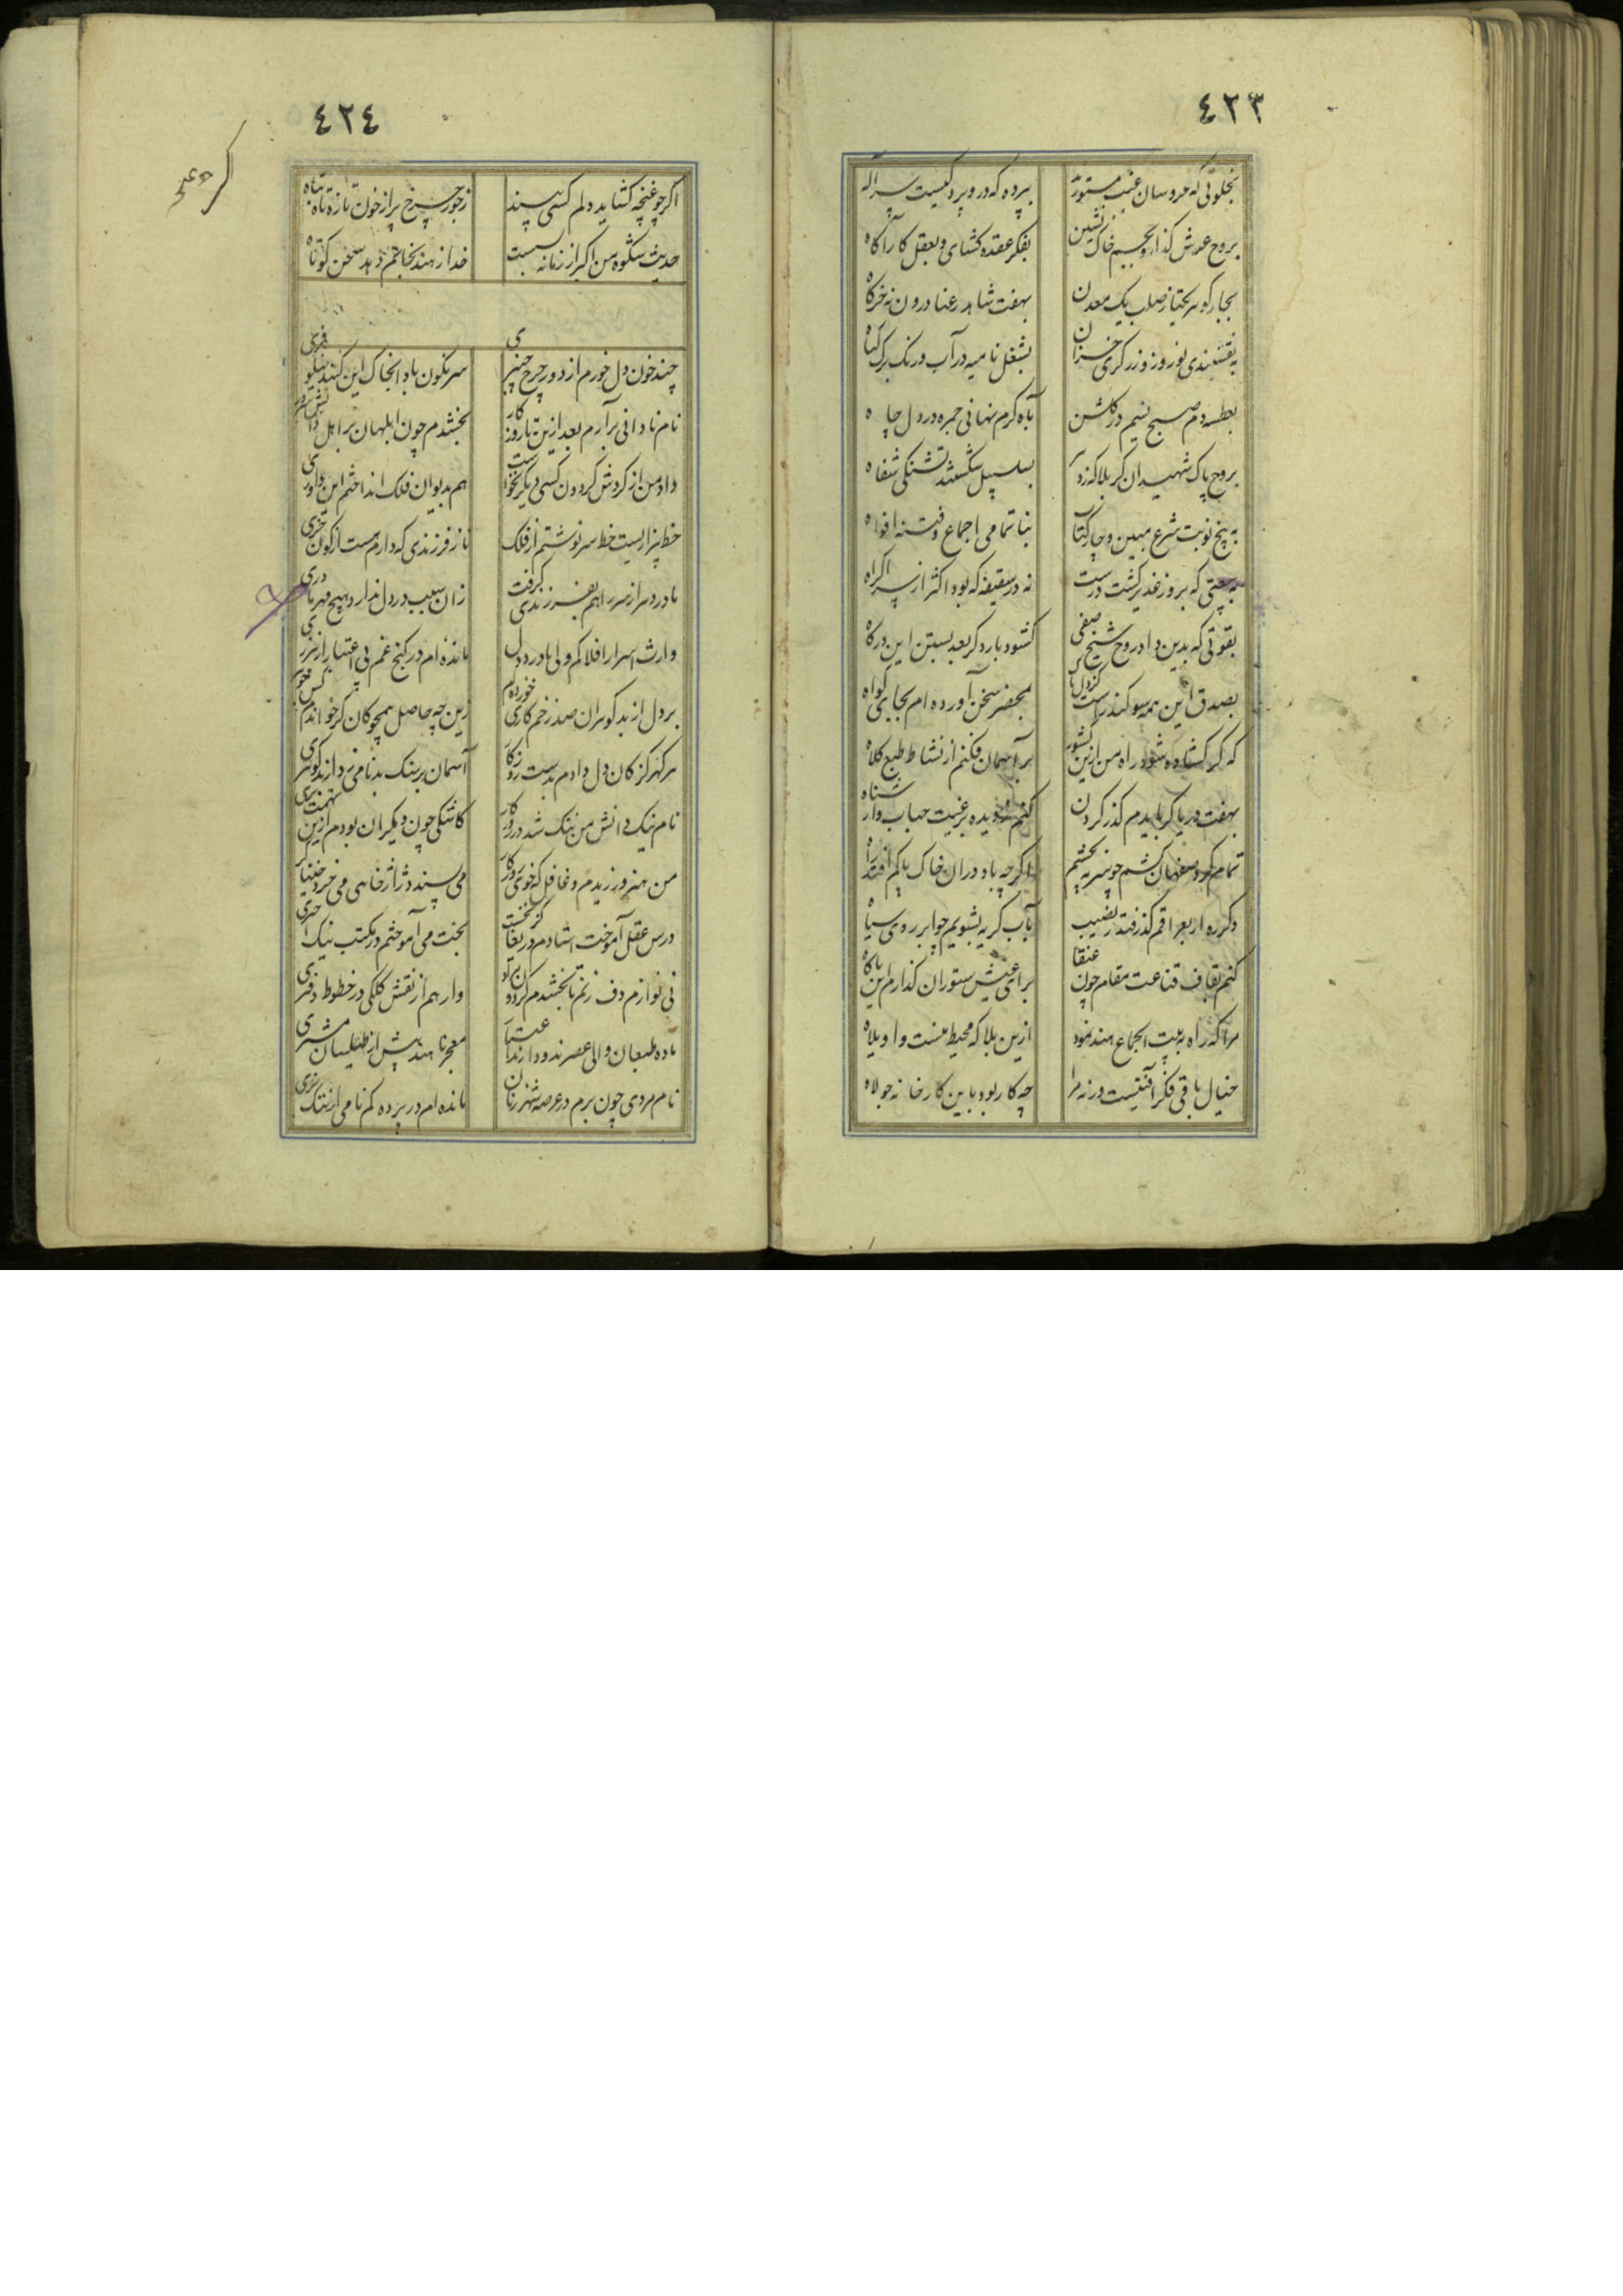 ٤٢٣
بخلوتی که عروسان غیب مستورند
بپرده که درو پرد کیست سر اله
بروح عرش کذار و بجسم خاک نشین
بفکر عقده کشای و بعقل کار آکاه
بچار کوهر یکتا ز صلب یک معدن
بهفت شاهد رعنا درون نه خرکاه
به نقشبندی نوروز و زرکری خزان
بشغل نامیه در آب و رنک برک کیاه
بعطسه دم صبح نسیم در کلشن
بآه کرم نهانی چو در دل چاه
بروح پاک شهیدان کربلا که زد
بسلسبیل تشنکی شفاه
به پنج نوبت شرع مبین و چار کتاب
بنا تمامی اجماع و فتنه افواه
به بیعتی که بروز غدیر کشت درست
نه در سقیفه که بود اکثر از سر اکراه
بقوتی که بدین داد روح شیخ صفی
کشود بار دکر بعد بستن این درکاه
بصدق این همه سوکند راست کز دل پاک
بمحضر سخن آورده ام بجای کواه
که کر کشاده شود راه من ازین کشور
بر آسمان فکنم از نشاط طبع کلاه
بهفت دریا کر بایدم کذر کردن
کنم ز دیده بر غبت حباب وار شناه
تمام کرد صفاهان کشم چو سرمه بچشم
اکرچه باد در آن خاک پاکم افتد راه
دکر ره ار بعراقم کذر فتد ز نصیب
بآب کریه بشویم چو ابر روی سیاه
کنم بقاف قناعت مقام چون عنقا
برای عیش ستوران کذارم این باکاه
مرا که راه به بیت اجماع هند نمود
ازین بلا که محیط منست واویلاه
خیال باقی فکر آفتیست ورنه مرا
چه کار بود باین کارخانه جولاه
٤٢٤
اکر چو غنچه کشاید دلم کسی بیند
ز جور چرخ پر از خون تازه تاه بتاه
حدیث شکوه من اکر از زمانه بسست
خدا ز هند نجاتم دهد سخن کوتاه
چند خون دل خورم از دور چرخ چنبری
سرنکون باد الهی خاک این کنبد نیلوفری
نام نادانی برآرم بعد ازین تا روزکار
بخشدم چون ابلهان بر اهل دانش سرو
داد من از کردش کردون کسی دیکر نخواست
هم بدیوان فلک انداختم این داوری
خط بیزاریست خط سرنوشتم از فلک
تا ز فرزندی که دارم هست از کون
مادر دهر از سر راهم بفرزندی کرفت
زان سبب در دل ندارد هیچ مهر مادری
وارث اسرار افلاکم ولی با درد دل
مانده ام در کنج غم بی اعتبار از
بر دل از بد کوهران صد زخم کاری خورده ام
زین چه حاصل همچو کان کر خواندم کس
هر کهر کز کان دل دادم بدست روزکار
آسمان بر سنک بدنامی زد از بد کوهری
نام نیک دانش من ننک شد در روزکار
کاشکی چون دیکران بودم ازین تهمت بری
من هنر ورزیدم و غافل که خوی روزکار
می پسندد ژاژ خایی می خرد خنیاکری
درس عقل آموخت استادم دریغا کز نخست
بخت می آموختم در مکتب نیک اختری
نی نوازم دف زنم تا بخشدم کردون مراد
وارهم از نقش کلکی در خطوط دفتری
ماده طبعان والی عصرند و دارند اعتبار
معجر ناهید پیش از طیلسان مشتری
نام مردی چون برم در عرصه شهر زنان
مانده ام در پرده کم نامی از ننک نری